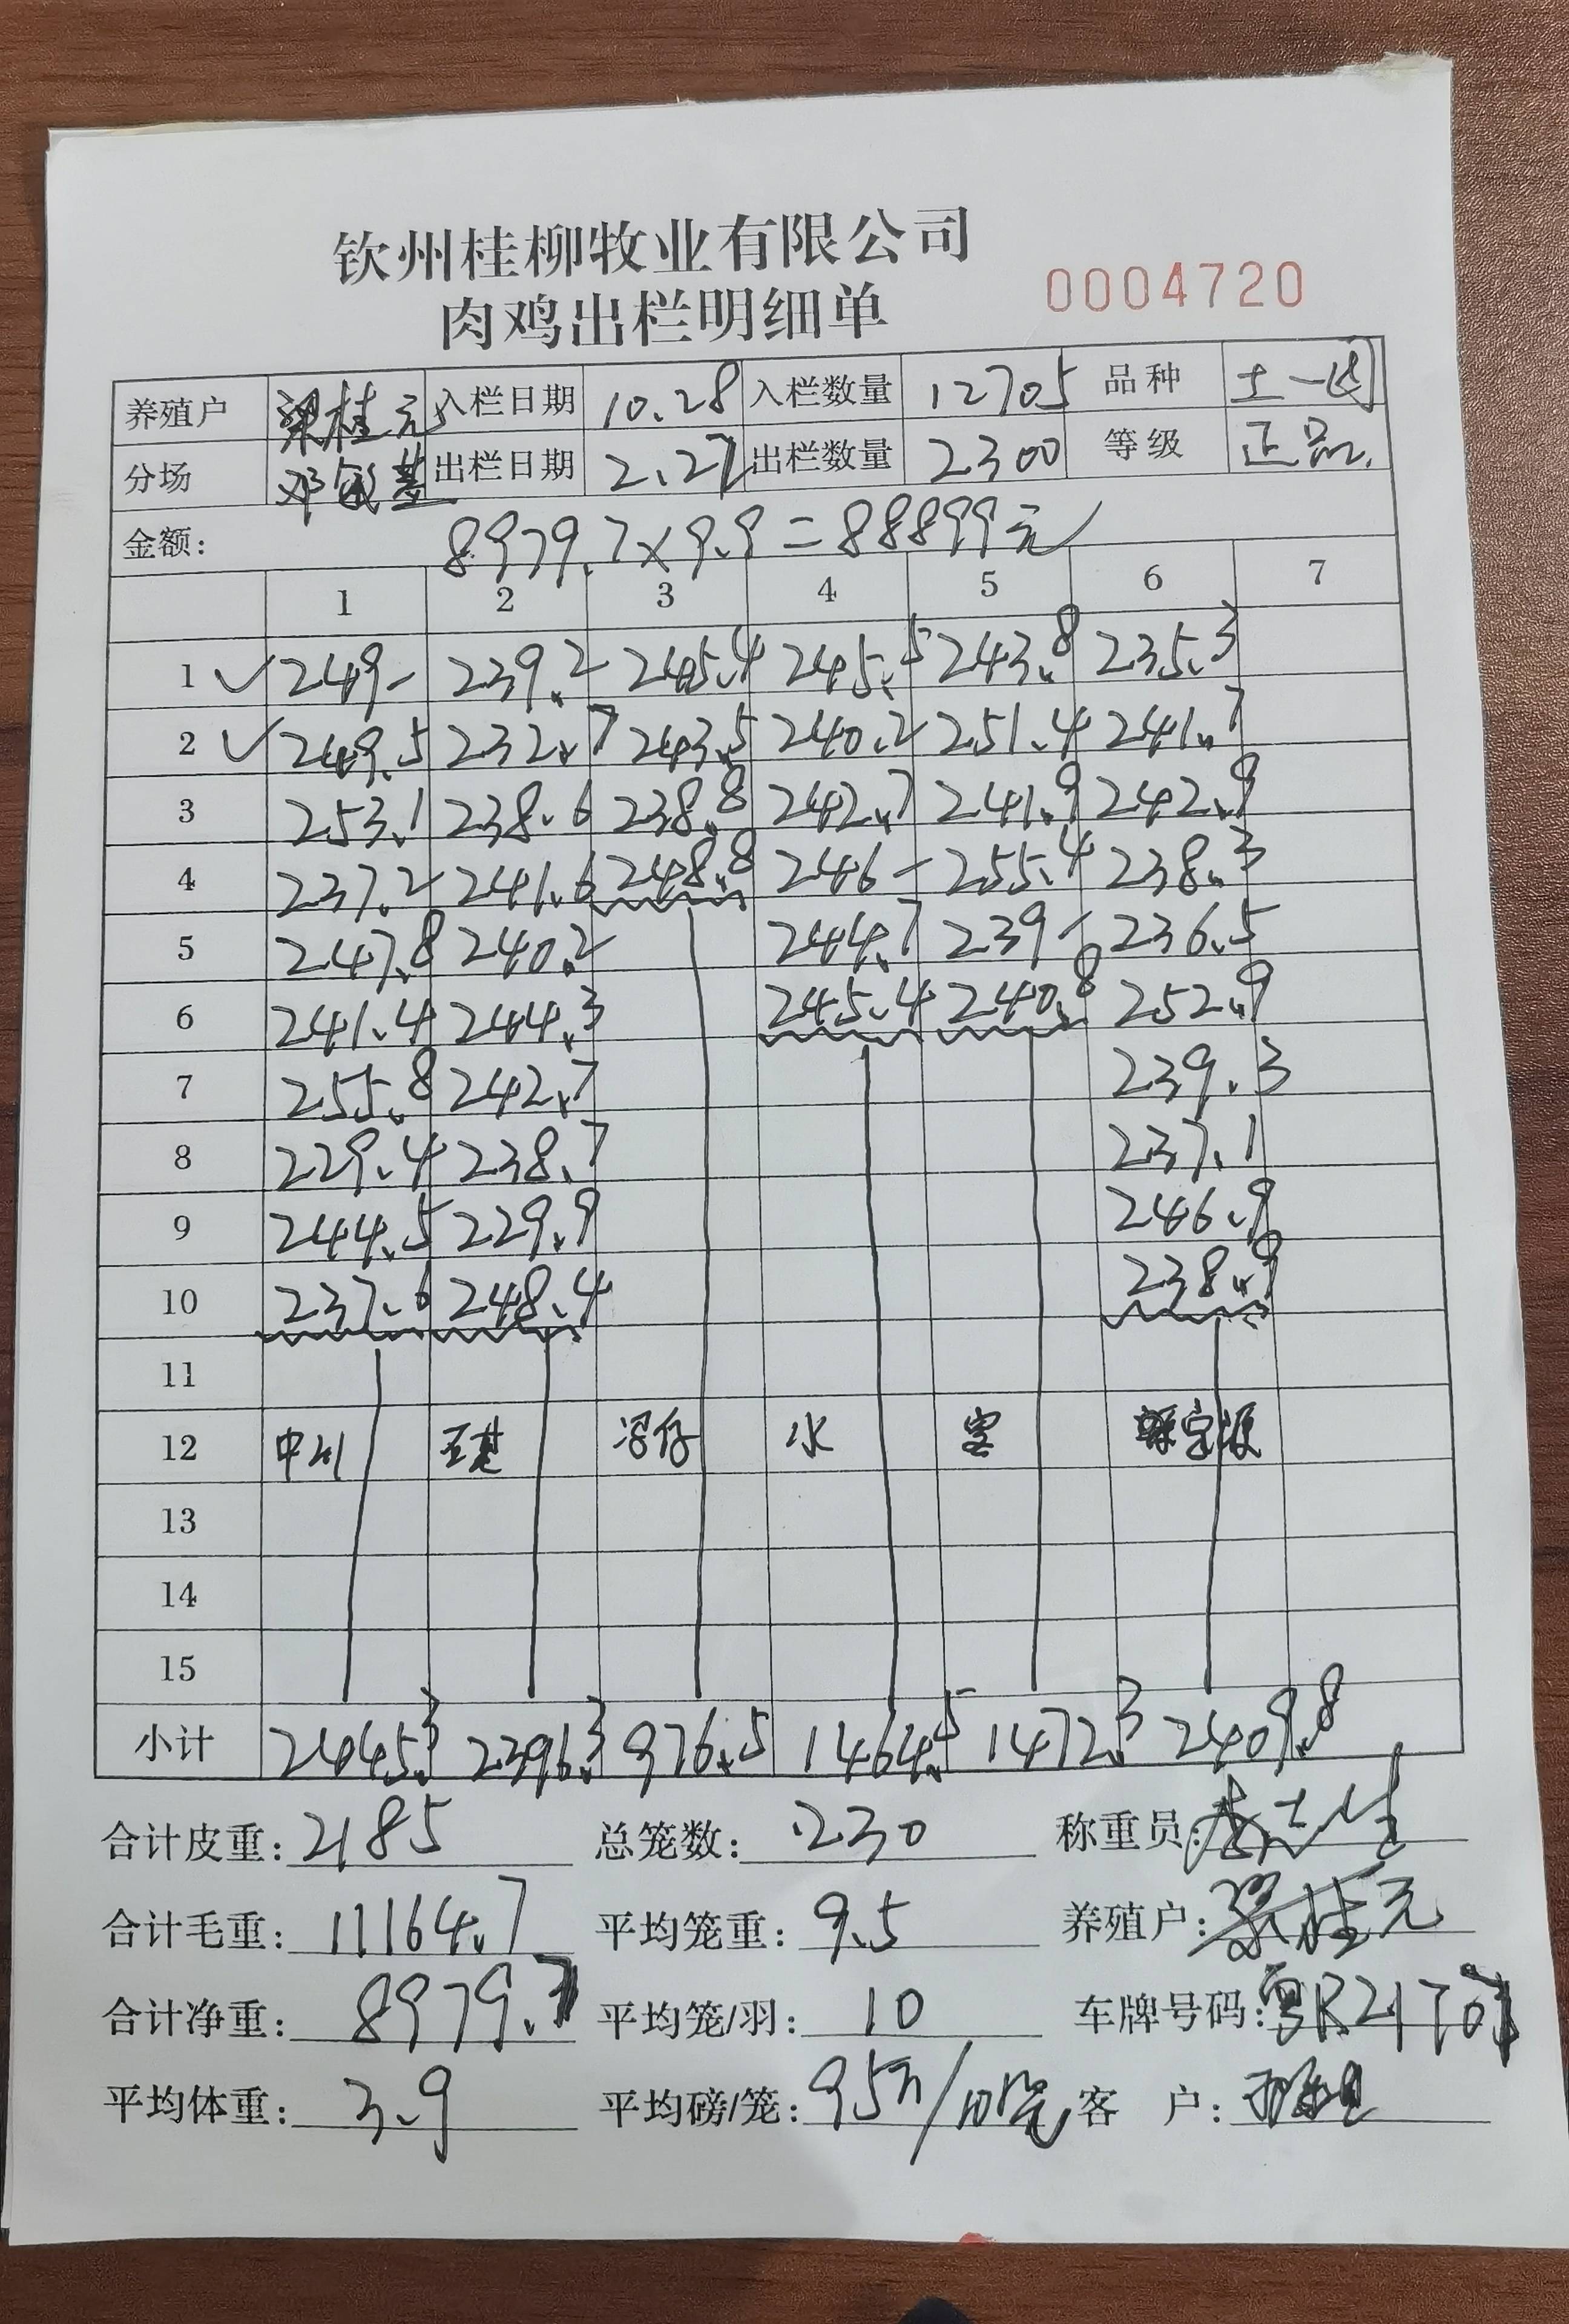 钦州桂柳牧业有限公司
肉鸡出栏明细单 0004720
养殖户 梁桂元 入栏日期 10.28 入栏数量 12705 品种 土一
分场 邓 出栏日期 2.27 出栏数量 2300 等级 正品.
金额: 8979.7×9.9=88899元
1 2 3 4 5 6 7
1 ✓ 249- 239.2 245.4 245.5 243.8 235.3
2 ✓ 249.5 232.7 243.5 240.2 251.4 241.7
3 253.1 238.6 238.8 242.7 241.9 242.9
4 237.2 241.6 248.8 246- 255.4 238.3
5 247.8 240.2 244.7 239- 236.5
6 241.4 244.3 245.4 240.8 252.9
7 255.8 242.7 239.3
8 229.4 238.7 237.1
9 244.5 229.9 246.9
10 237.6 248.4 238.9
11
12 中 水
13
14
15
小计 2445.3 2396.3 976.5 1464.5 1472.3 2409.8
合计皮重: 2185 总笼数: 230 称重员:
合计毛重: 11164.7 平均笼重: 9.5 养殖户: 梁桂元
合计净重: 8979.7 平均笼/羽: 10 车牌号码: 粤R21
平均体重: 3.9 平均磅/笼: 95 客 户: